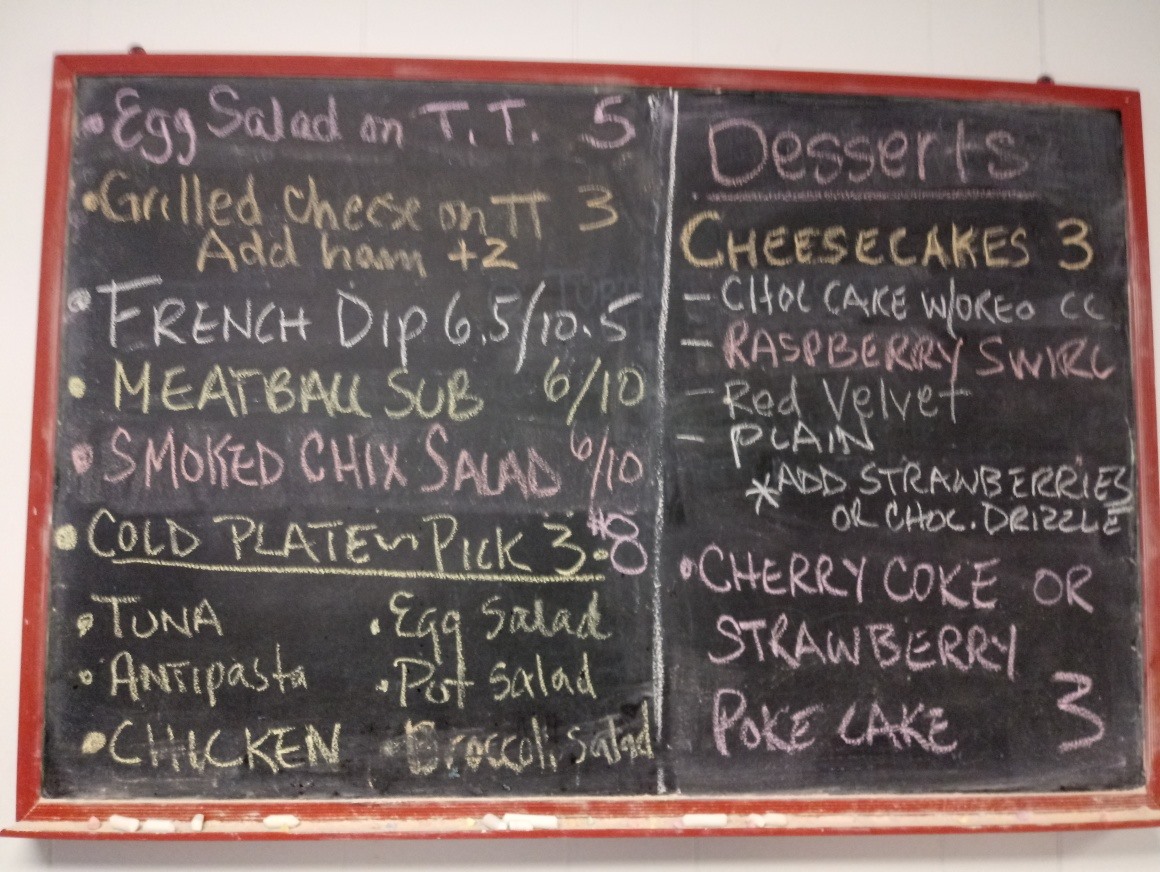 • Egg Salad on T.T. 5
• Grilled Cheese on TT 3
Add ham +2
• FRENCH Dip 6.5/10.5
• MEATBALL SUB 6/10
• SMOKED CHIX SALAD 6/10
• COLD PLATE~PICK 3 • $8
• TUNA
• ANTIpasta
• CHICKEN
• Egg Salad
• Pot salad
• Broccoli salad
Desserts
CHEESECAKES 3
- CHOC CAKE W/OREO CC
- RASPBERRY SWIRL
- Red Velvet
- PLAIN
* ADD STRAWBERRIES
OR CHOC. DRIZZLE
• CHERRY COKE OR
STRAWBERRY
POKE CAKE 3